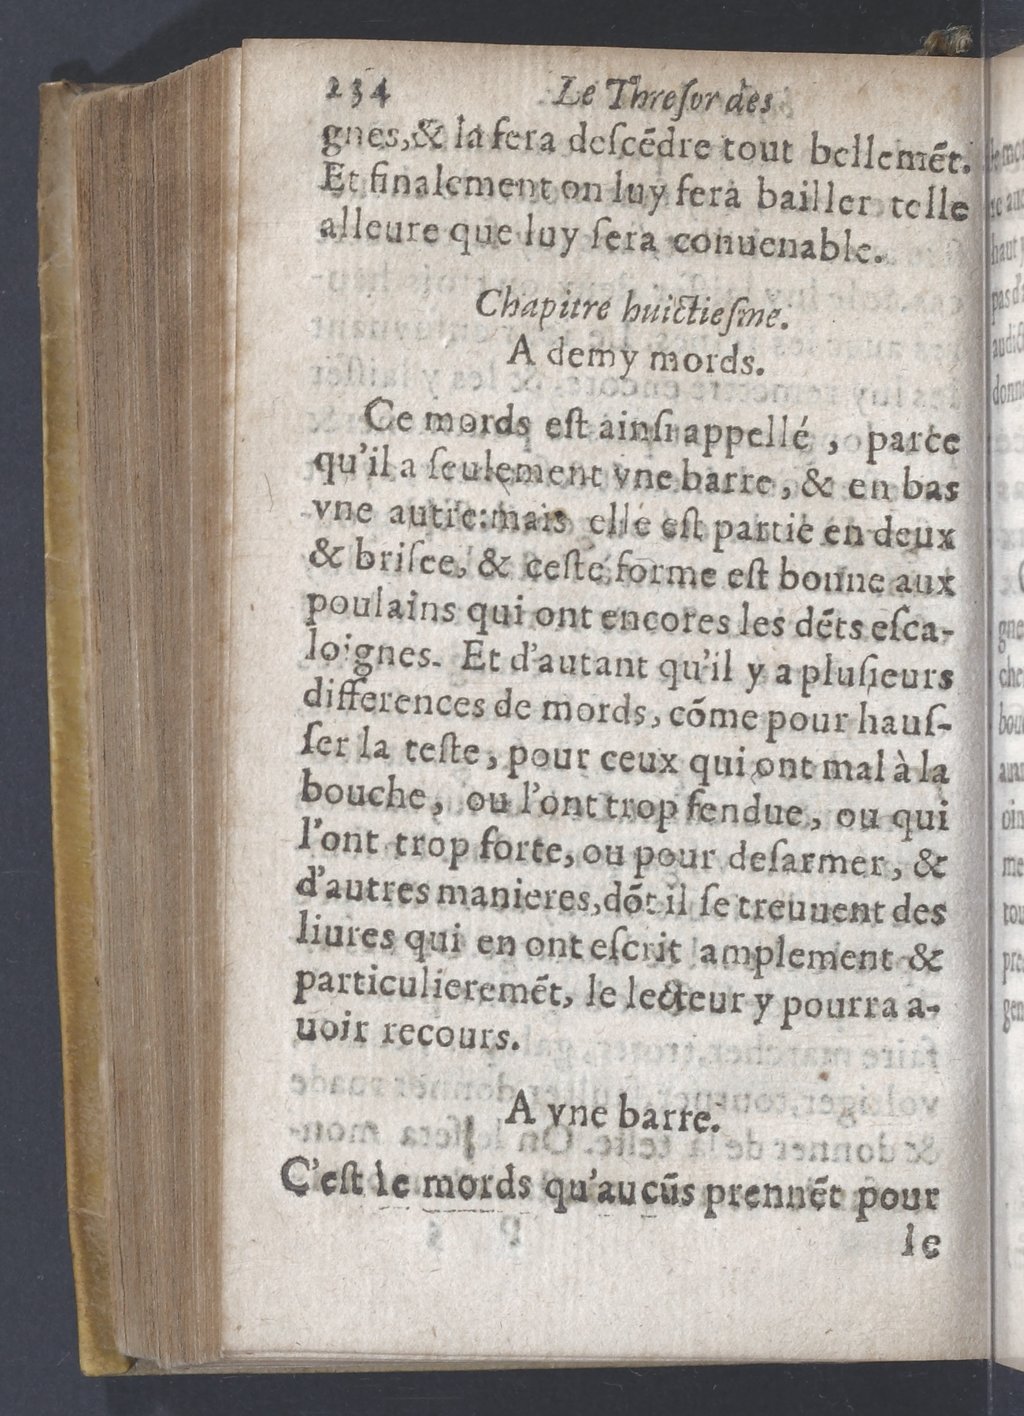 234 Le Threſor des
gnes, & la fera deſcẽdre tout bellemẽt.
Et finalement on luy fera bailler telle
alleure que luy ſera conuenable.
Chapitre huictieſme.
A demy mords.
Ce mords eſt ainſi appellé , parce
qu'il a ſeulement vne barre, & en bas
vne autre: mais elle eſt partie en deux
& briſee, & ceſte forme eſt bonne aux
poulains qui ont encores les dẽts eſca-
loignes. Et d'autant qu'il y a pluſieurs
differences de mords, cõme pour hauſ-
ſer la teſte, pour ceux qui ont mal à la
bouche, ou l'ont trop fendue, ou qui
l'ont trop forte, ou pour deſarmer, &
d'autres manieres, dõt il ſe treuuent des
liures qui en ont eſcrit amplement &
particulieremẽt, le lecteur y pourra a-
uoir recours.
A vne barre.
C'eſt le mords qu'aucũs prennẽt pour
le